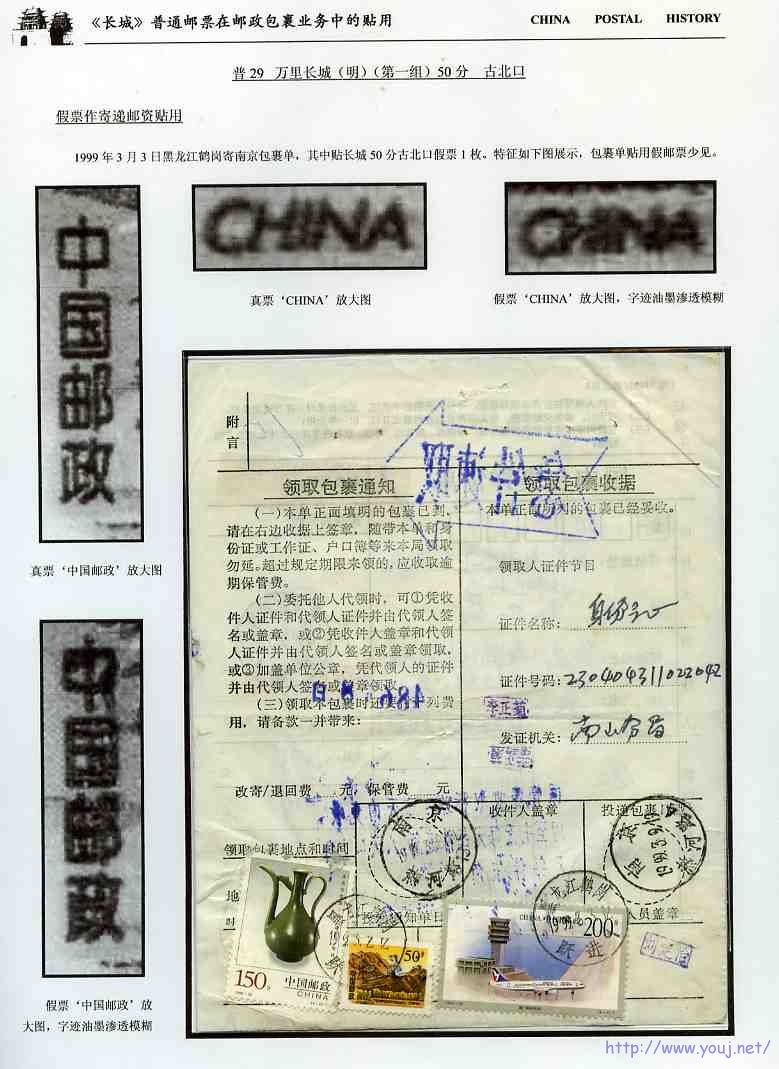 《长城》普通邮票在邮政包裹业务中的贴用
CHINA POSTAL HISTORY
普29 万里长城(明)(第一组)50分 古北口
假票作寄递邮资贴用
1999年3月3日黑龙江鹤岗寄南京包裹单,其中贴长城50分古北口假票1枚。特征如下图展示,包裹单贴用假邮票少见。
中国邮政
CHINA
CHINA
真票‘CHINA’放大图
假票‘CHINA’放大图,字迹油墨渗透模糊
真票‘中国邮政’放大图
中国邮政
假票‘中国邮政’放
大图,字迹油墨渗透模糊
附言
领取包裹通知
(一)本单正面填明的包裹已到,
请在右边收据上签章,随带本单和身
份证或工作证、户口簿等来本局领取
勿延。超过规定期限来领的,应收取逾
期保管费。
(二)委托他人代领时,可①凭收
件人证件和代领人证件并由代领人签
名或盖章,或②凭收件人盖章和代领
人证件并由代领人签名或盖章领取,
或③加盖单位公章,凭代领人的证件
并由代领人签名或盖章领取。
(三)领取本包裹时还要 列费
用,请备款一并带来:
改寄/退回费 元,保管费 元
领取包裹收据
本单正面所列的包裹已经妥收。
领取人证件节目
证件名称:身份证
证件号码:230404311022042
李正菊
发证机关:南山分局
收件人盖章
投递包裹
领取包裹地点和时间
地
时
投递通知单日
人员盖章
南京
1999.3.9
黑龙江鹤岗
跃进
150分
中国邮政
CHINA
50分
CHINA 中国邮政
200分
http://www.youj.net/